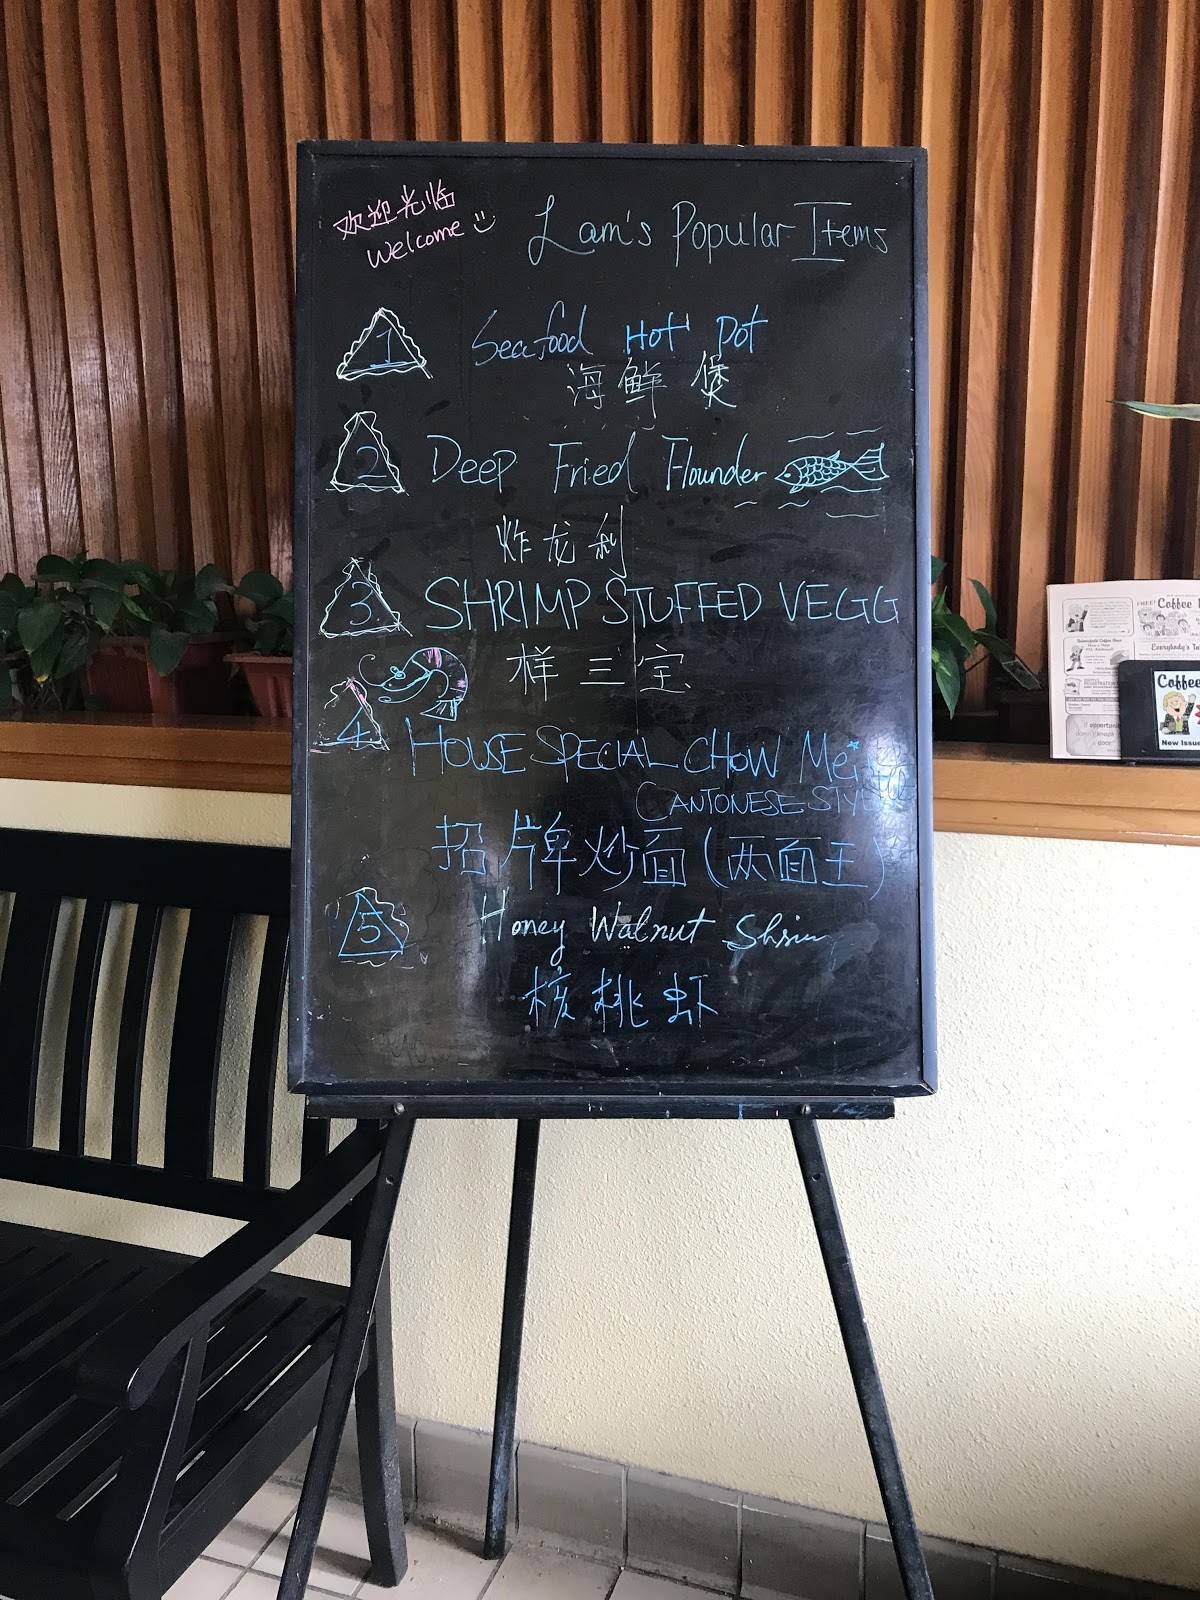 欢迎光临
Welcome
Lam's Popular Items
1
Seafood Hot Pot
海鲜煲
2
Deep Fried Flounder
炸龙利
3
SHRIMP STUFFED VEGG
样三宝
4
HOUSE SPECIAL CHOW
CANTONESE
招牌炒面(两面王)
5
Honey Walnut
核桃虾
Coffee
Everybody's
Coffee
New Issue